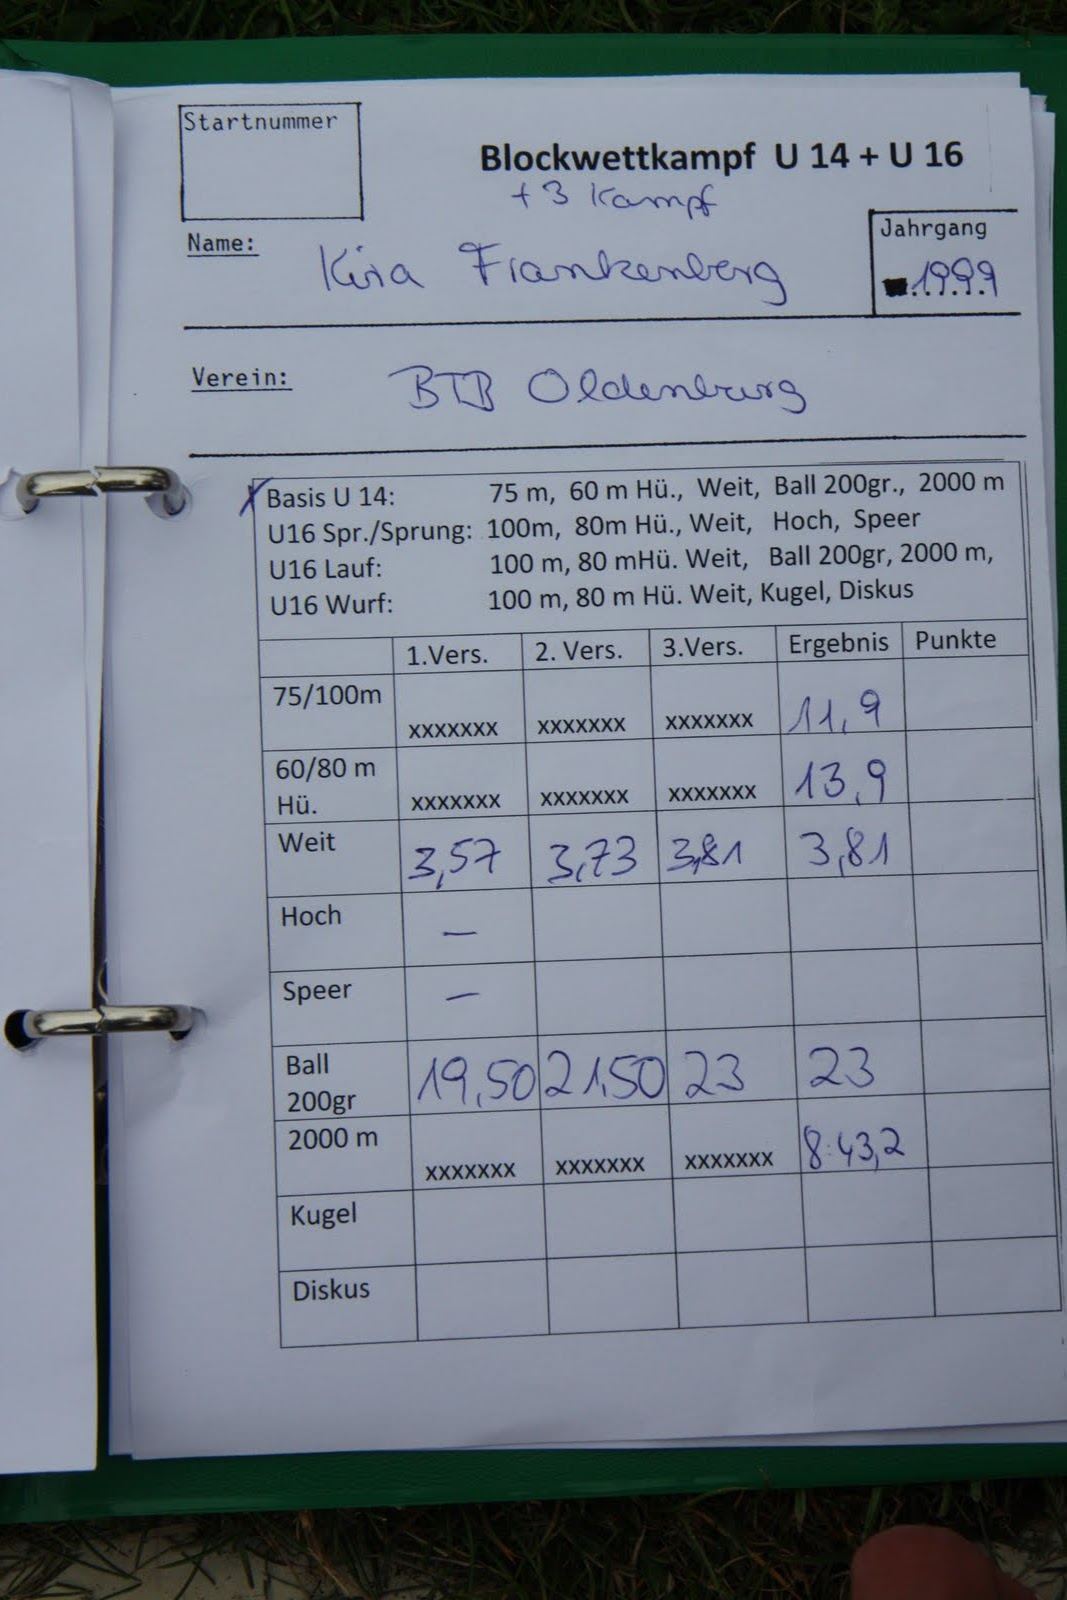 Startnummer
Blockwettkampf U 14 + U 16
+ 3 Kampf
Name: Kira Frankenberg
Jahrgang
1999
Verein: BTB Oldenburg
x Basis U 14: 75 m, 60 m Hü., Weit, Ball 200gr., 2000 m
U16 Spr./Sprung: 100m, 80m Hü., Weit, Hoch, Speer
U16 Lauf: 100 m, 80 mHü. Weit, Ball 200gr, 2000 m,
U16 Wurf: 100 m, 80 m Hü. Weit, Kugel, Diskus
1.Vers. 2. Vers. 3.Vers. Ergebnis Punkte
75/100m xxxxxxx xxxxxxx xxxxxxx 11,9
60/80 m
Hü. xxxxxxx xxxxxxx xxxxxxx 13,9
Weit 3,57 3,73 3,81 3,81
Hoch –
Speer –
Ball
200gr 19,50 21,50 23 23
2000 m xxxxxxx xxxxxxx xxxxxxx 8:43,2
Kugel
Diskus